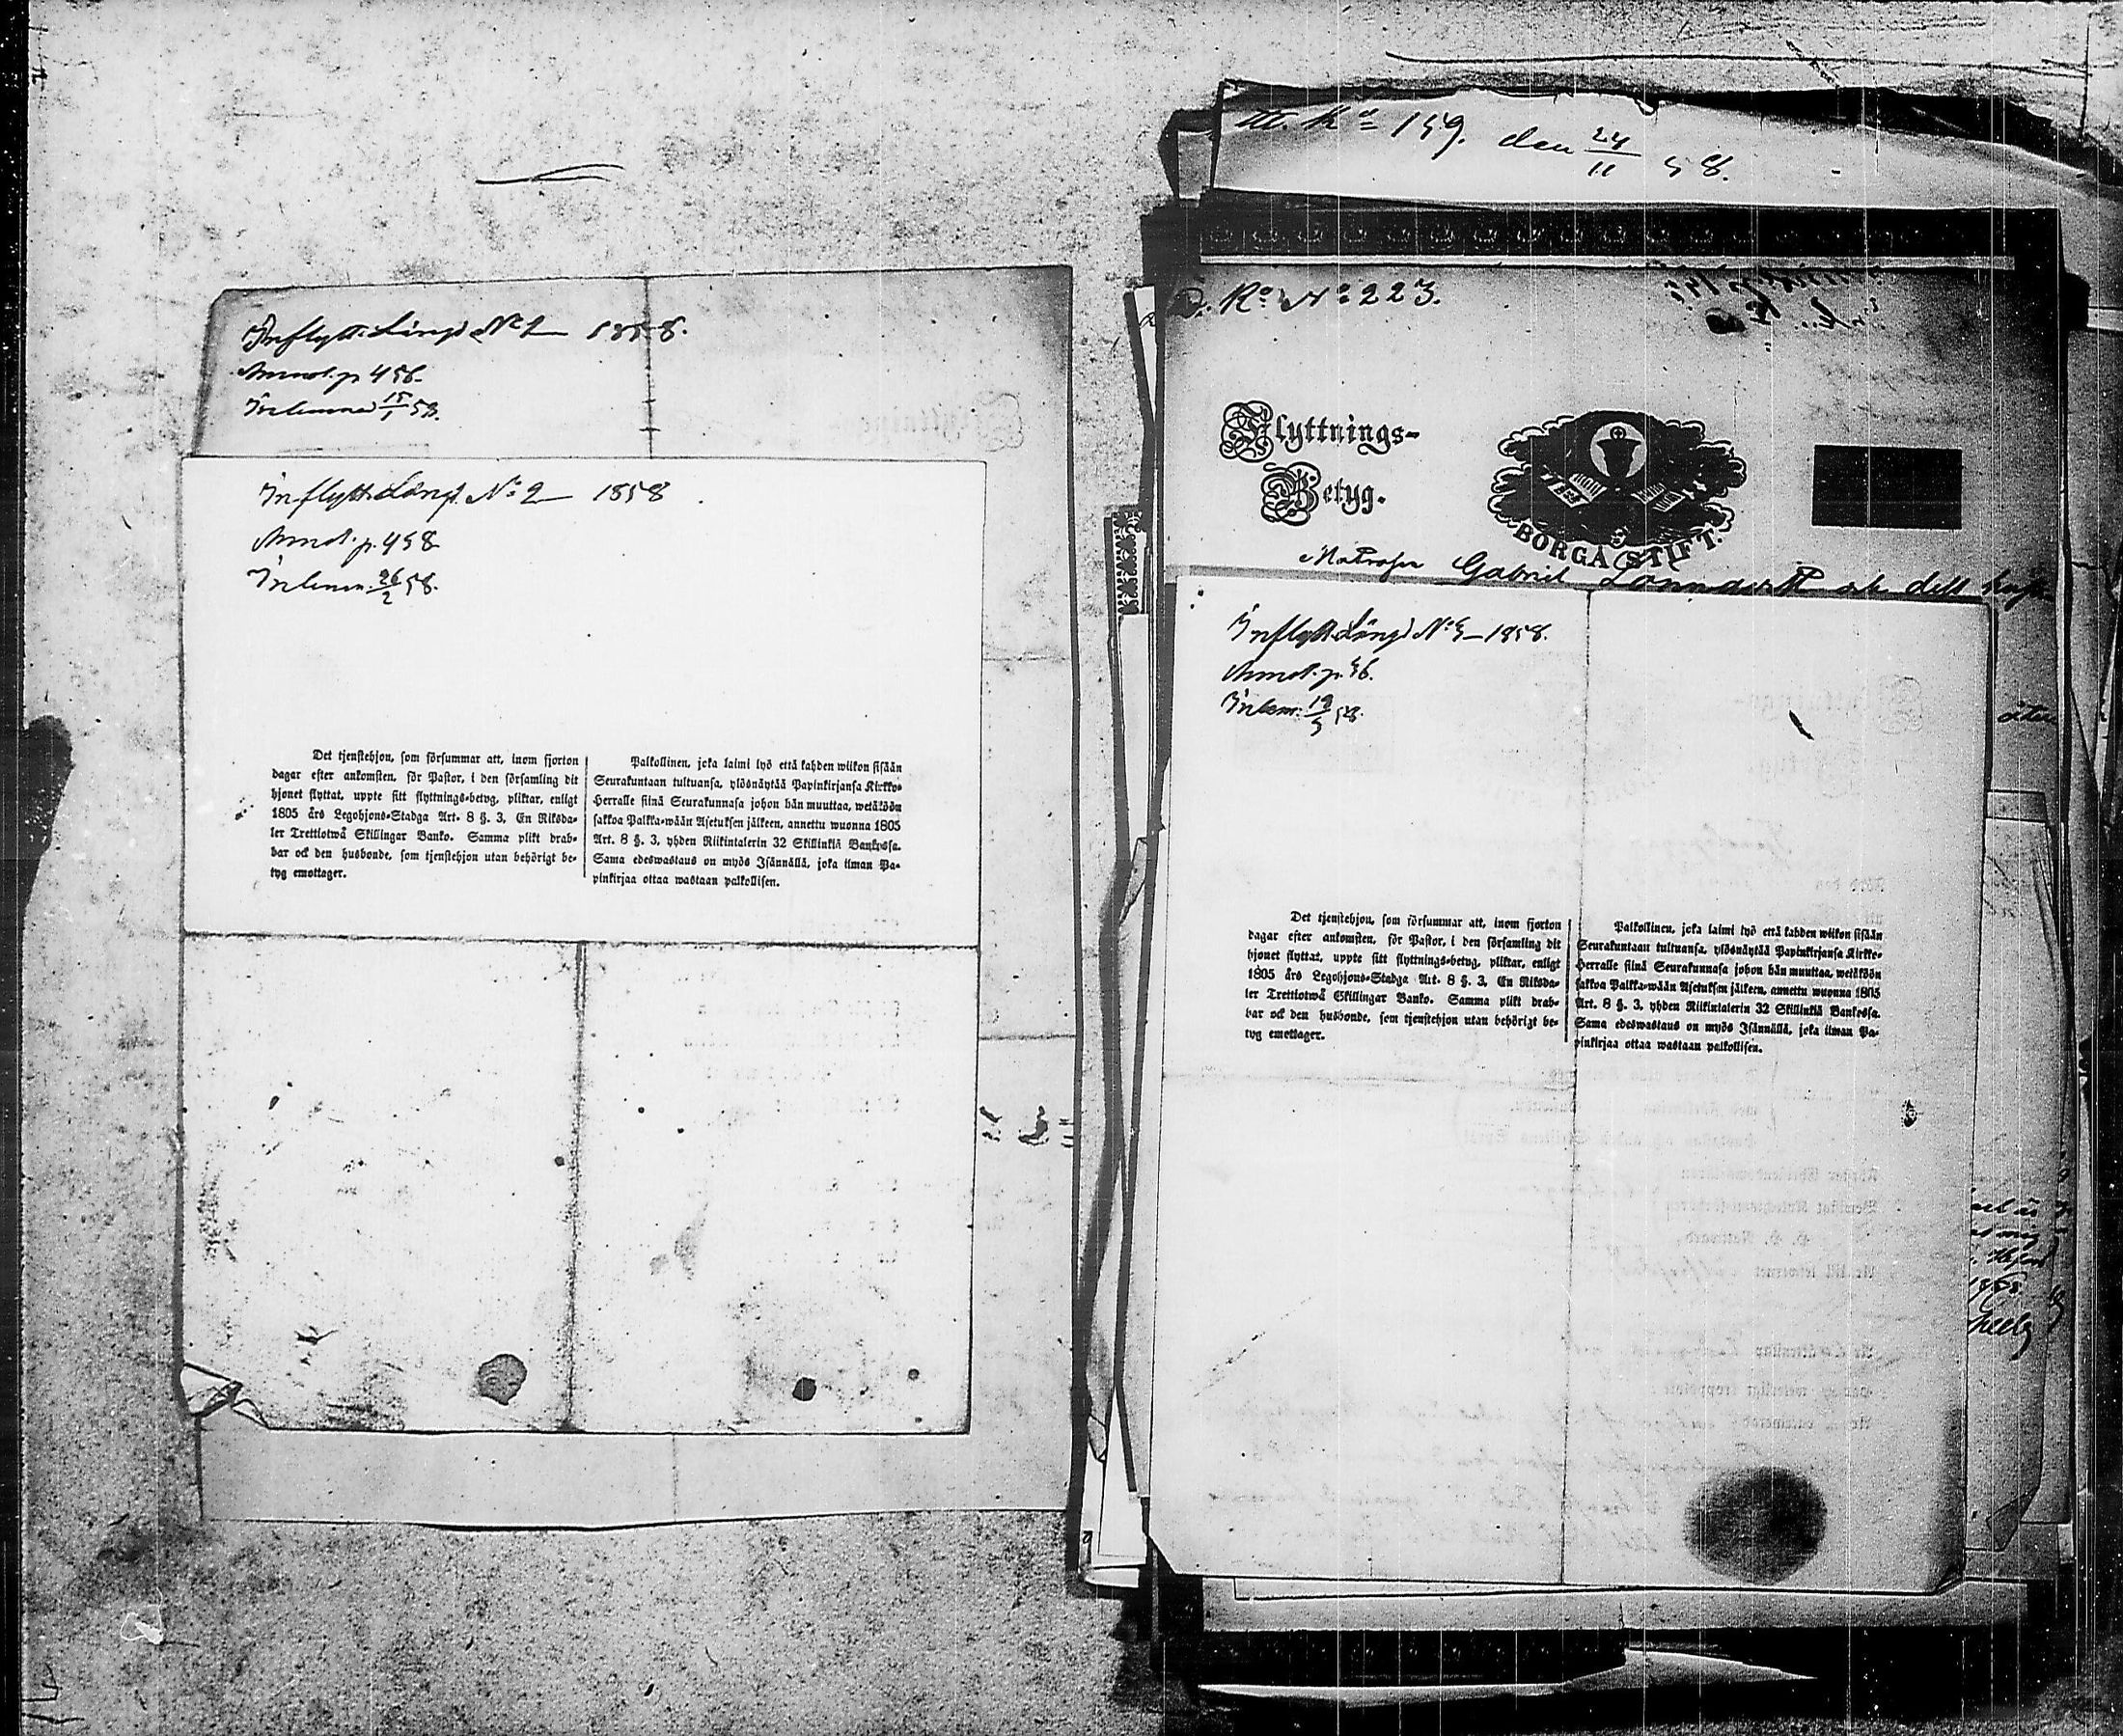 Inflytt. Längd N:o 1 1858.
Annot. p 456.
Inlemnad 15/1 58.
Inflytt. Längd. N:o 2 1858
Annot. p. 458
Inlemn. 26/2 58.
Det tjenstehjon, som försummar att, inom fjorton
dagar efter ankomsten, för Pastor, i den församling dit
hjonet flyttat, uppte sitt flyttnings-betyg, pliktar, enligt
1805 års Legohjons-Stadga Art. 8 §. 3, En Riksda-
ler Trettiotwå Skillingar Banko. Samma plikt drab-
bar ock den husbonde, som tjenstehjon utan behörigt be-
tyg emottager.
Palkollinen, joka laimi lyö että kahden wiikon sisään
Seurakuntaan tultuansa, ylösnäytää Papinkirjansa Kirkko-
Herralle siinä Seurakunnasa johon hän muuttaa, wetäköön
sakkoa Palkka-wään Asetuksen jälkeen, annettu wuonna 1805
Art. 8 §. 3, yhden Riikintalerin 32 Skillinkiä Bankossa.
Sama edeswastaus on myös Isännällä, joka ilman Pa-
pinkirjaa ottaa wastaan palkollisen.
N:o 159. den 24/11 58.
D. K:o N:o 223.
Flyttnings-
Betyg.
BORGÅ STIFT.
Matrosen Gabriel
Inflytt. Längd N:o 5 1858.
Annot. p. 56.
Inlem. 19/5 58.
Det tjenstehjon, som försummar att, inom fjorton
dagar efter ankomsten, för Pastor, i den församling dit
hjonet flyttat, uppte sitt flyttnings-betyg, pliktar, enligt
1805 års Legohjons-Stadga Art. 8 §. 3, En Riksda-
ler Trettiotwå Skillingar Banko. Samma plikt drab-
bar ock den husbonde, som tjenstehjon utan behörigt be-
tyg emottager.
Palkollinen, joka laimi lyö että kahden wiikon sisään
Seurakuntaan tultuansa, ylösnäytää Papinkirjansa Kirkko-
Herralle siinä Seurakunnasa johon hän muuttaa, wetäköön
sakkoa Palkka-wään Asetuksen jälkeen, annettu wuonna 1805
Art. 8 §. 3, yhden Riikintalerin 32 Skillinkiä Bankossa.
Sama edeswastaus on myös Isännällä, joka ilman Pa-
pinkirjaa ottaa wastaan palkollisen.